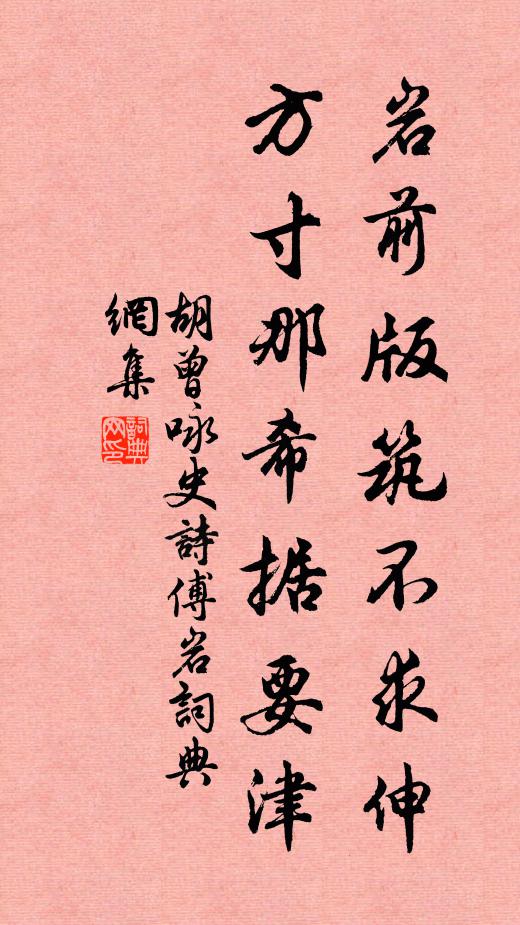 岩前版筑不求伸
方寸那希据要津
胡曾咏史詩傅岩詞典
網集
詞典网印